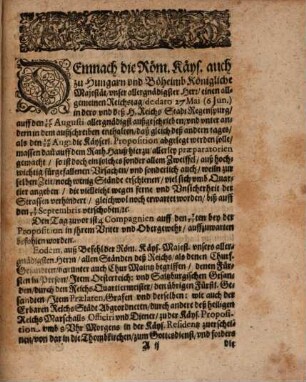 DEmnach die Röm. Käys. auch
zu Hungarn und Böheimb Königliche
Majestät, unser allergnädigster Herr/ einen all-
gemeinen Reichstag/ de dato 27 Mai (6 Jun.)
in dero und deß H. Reichs Stadt Regenspurg
auff den Augusti allergnädigst außgeschrieben/ und unter
andern in dem außschreiben enthalten/ daß gleich deß andern tages/
als den Aug. die Käyserl. Proposition abgelegt werden solle/
massen dañ auff dem Rath-Hauß hier zu allerley præparatorien
gemacht/ so ist doch ein solches sonder allem Zweiffel/ auß hoch-
wichtig fürgefallenen Ursachen/ und sonderlich auch/ weiln zur
selben Zeit noch wenig Stände erschienen/ viel sich umb Quar-
tier angeben/ die vielleicht wegen ferne und Unsicherheit der
Strassen verhindert/ gleichwol noch erwartet worden/ biß auff
den Septembris verschoben/ &c.
Den Tag zuvor ist 4 Compagnien auff den ten bey der
Proposition in ihrem Unter und Obergewehr/ auffzuwarten
befohlen worden.
Eodem, auß Befehl der Röm. Käys. Majest. unsers aller-
gnädigsten Herrn/ allen Ständen deß Reichs/ als denen Churf.
Gesandten/ darunter auch Chur Maintz begriffen/ denen Fürst
sten in Person/ Item Oesterreich- und Saltzburgischen Gesan-
den/ durch den Reichs-Quartiermeister/ den übrigen Fürstl. Ge-
sandten/ Item Prælaten, Grafen und derselben: wie auch der
Erbaren Reichs-Städte Abgeordneten/ durch andere deß heiligen
Reichs Marschalls Officirn und Diener/ zu der Käys. Proposi-
tion, umb 8 Uhr Morgens in der Käys. Residentz zuerschei-
nen/ von dar in die Thumbkirchen/ zum Gottesdienst/ und folgends
A ij die